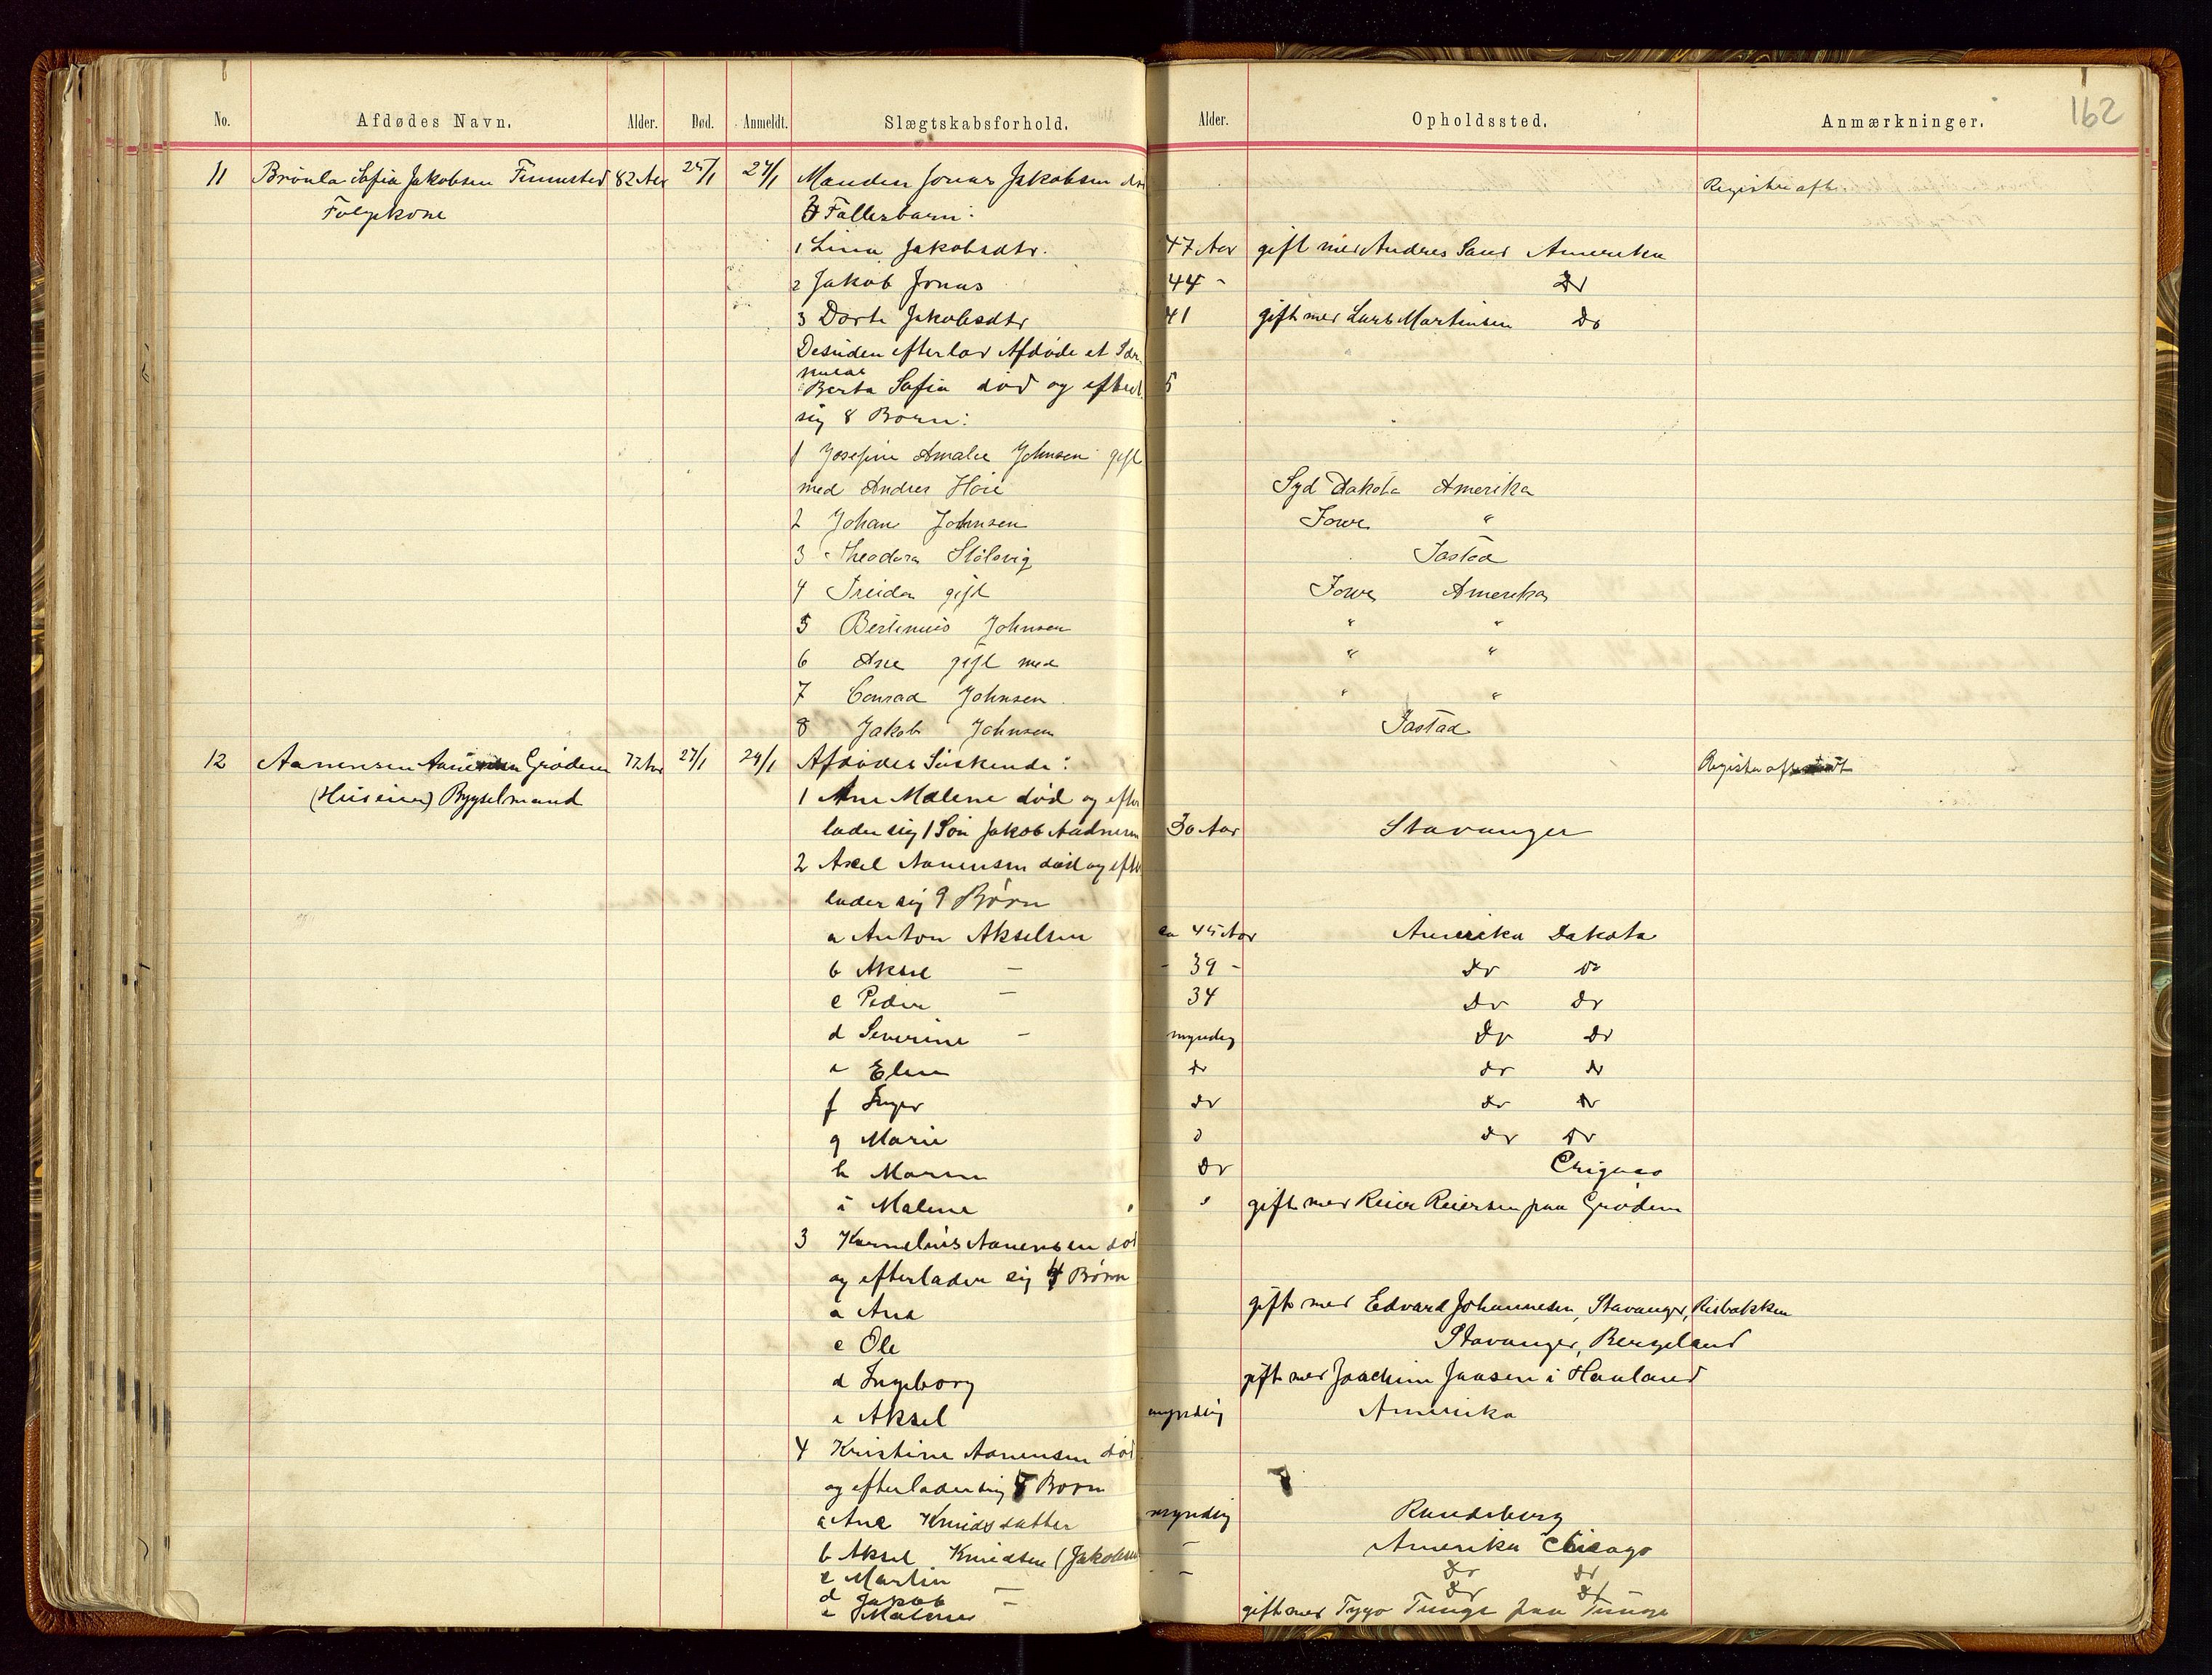 162
No. Afdødes Navn. Alder. Død. Anmeldt. Slægtskabsforhold. Alder. Opholdssted. Anmærkninger.
11 Sofia Jakobsen 82 Aar 25/1 27/1 Manden Jonas Jakobsen Registr. afh.
Følgekone 3 Fællesbarn:
1 Lina Jakobsdtr. 47 Aar gift med Andres Sand Amerika
2 Jakob Jonas 44 - Do
3 Dorte Jakobsdtr 41 gift med Lars Martinsen Do
Desuden efterlod Afdøde et
Berta Sofia død og
sig 8 Børn:
1 Josefine Amalie Johnsen gift
med Andres Hoie Syd Dakota Amerika
2 Johan Johnsen Iowa "
3 Theodora Stølsvig Tastad
4 gift Iowa Amerika
5 Bertinius Johnsen " "
6 Ane gift med " "
7 Conrad Johnsen " "
8 Jakob Johnsen Tastad
12 Aanensen Grødem 77 Aar 27/1 29/1 Afdødes Søskende:
(Huseier) Bygselmand 1 Ane Malene død og efter
lader sig 1 Søn Jakob 30 Aar Stavanger
2 Axel Aanensen død og efter
lader sig 9 Børn
a Anton Akselsen ca 45 Aar Amerika Dakota
b Aksel — - 39 - do do
c Peder — 34 do do
d Severine — myndig do do
e Elen do do do
f Inger do do do
g Marie do do
h Maren do Chigaco
i Malene gift med Reier Reiersen paa Grødem
3 Kornelius Aanensen død
og efterlader sig 4 Børn
a Ane gift med Edvard Johannesen, Stavanger, Risbakken
c Ole Stavanger, Bergeland
d Ingeborg gift med Joachim Jansen i Hauland
e Aksel myndig Amerika
4 Kristine Aanensen død
og efterlader sig Børn
a Ane Knudsdatter myndig Randeberg
b Aksel Knudsen (Jakobsen — Amerika Chicago
c Martin — do do
d Jakob — do do
e Malene gift med Tygo Tunge paa Tunge